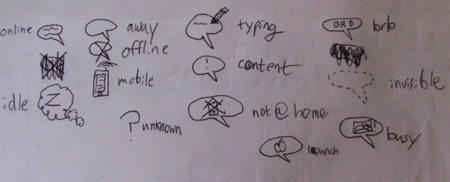 online
away
typing
BRB
brb
offline
mobile
content
invisible
idle
Z
not @ home
? unknown
busy
lunch